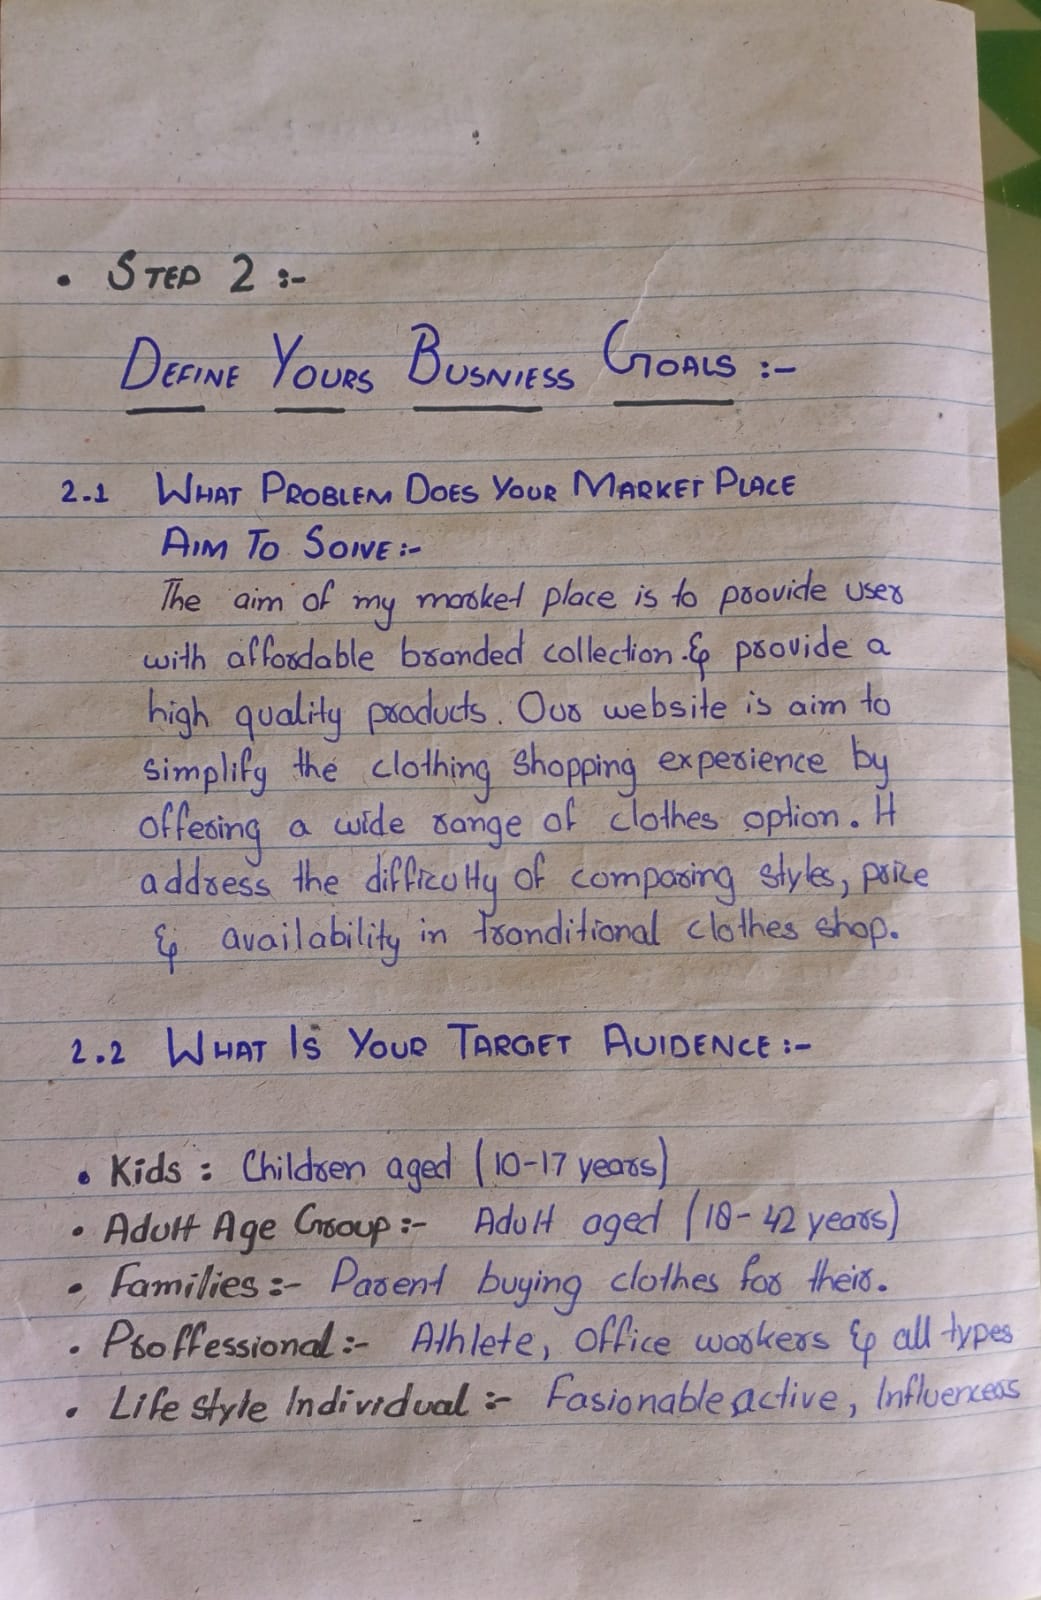 • STEP 2 :-
DEFINE YOURS BUSNIESS GOALS :-
2.1 WHAT PROBLEM DOES YOUR MARKET PLACE
AIM TO SOLVE :-
The aim of my market place is to provide user
with affordable branded collection & provide a
high quality products. Our website is aim to
simplify the clothing shopping experience by
offering a wide range of clothes option. It
address the difficulty of comparing styles, price
& availability in tranditional clothes shop.
2.2 WHAT IS YOUR TARGET AUIDENCE :-
• Kids : Children aged (10-17 years)
• Adult Age Group :- Adult aged (18-42 years)
• Families :- Parent buying clothes for their.
• Proffessional :- Athlete, Office workers & all types
• Life style Individual :- Fasionable active, Influencers